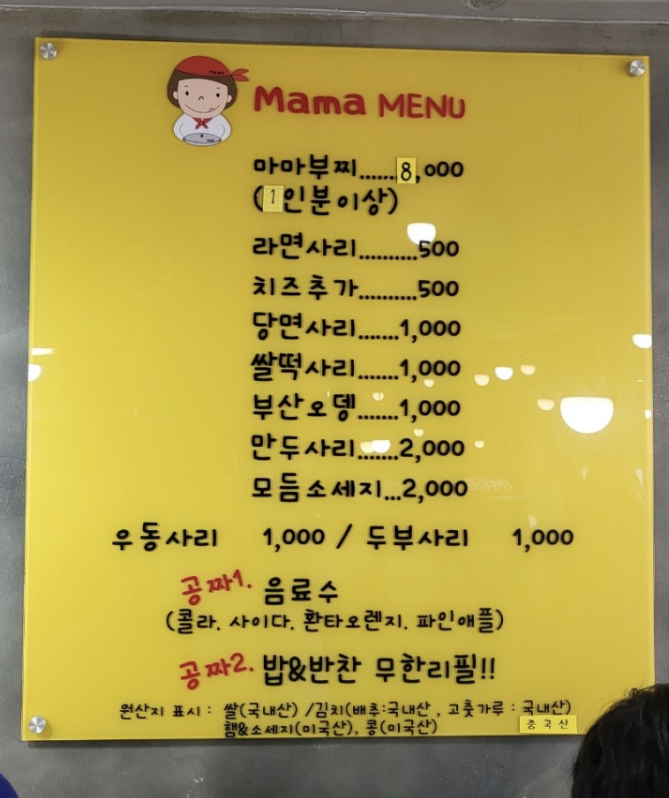 Mama MENU
마마부찌......8,000
(1인분이상)
라면사리..........500
치즈추가..........500
당면사리.......1,000
쌀떡사리.......1,000
부산오뎅.......1,000
만두사리.......2,000
모듬소세지...2,000
우동사리 1,000 / 두부사리 1,000
공짜1. 음료수
(콜라. 사이다. 환타오렌지. 파인애플)
공짜2. 밥&반찬 무한리필!!
원산지 표시 : 쌀(국내산) /김치(배추:국내산 , 고춧가루 : 국내산)
햄&소세지(미국산), 콩(미국산) 중국산